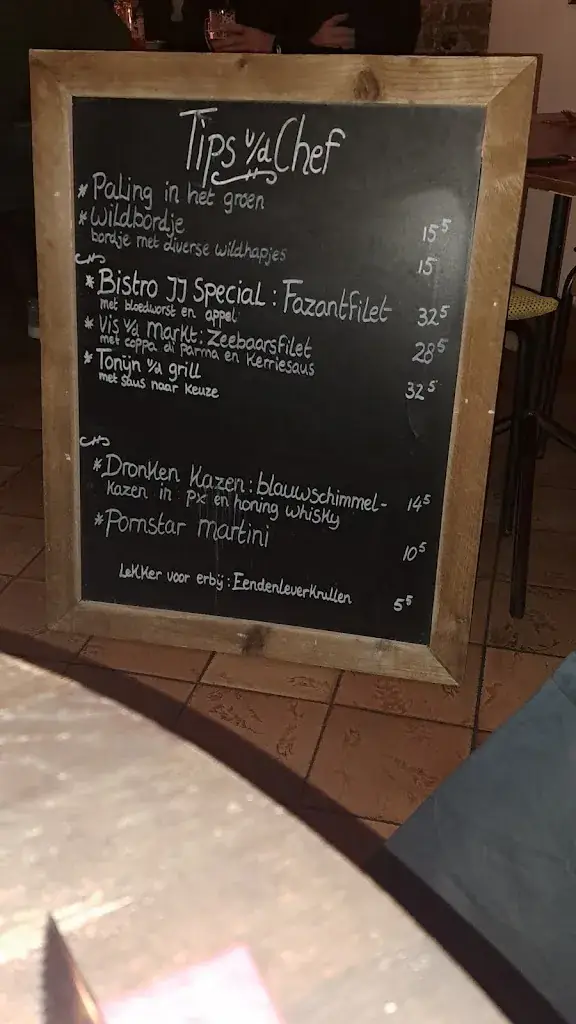 Tips v/d Chef
* Paling in het groen 15⁵
* Wildbordje 15
bordje met diverse wildhapjes
* Bistro JJ Special : Fazantfilet 32⁵
met bloedworst en appel
* Vis v/d markt : Zeebaarsfilet 28⁵
met coppa di Parma en Kerriesaus
* Tonijn v/d grill 32⁵
met saus naar keuze
* Dronken Kazen : blauwschimmel- 14⁵
kazen in PX en honing whisky
* Pornstar martini 10⁵
Lekker voor erbij : Eendenleverkrullen 5⁵